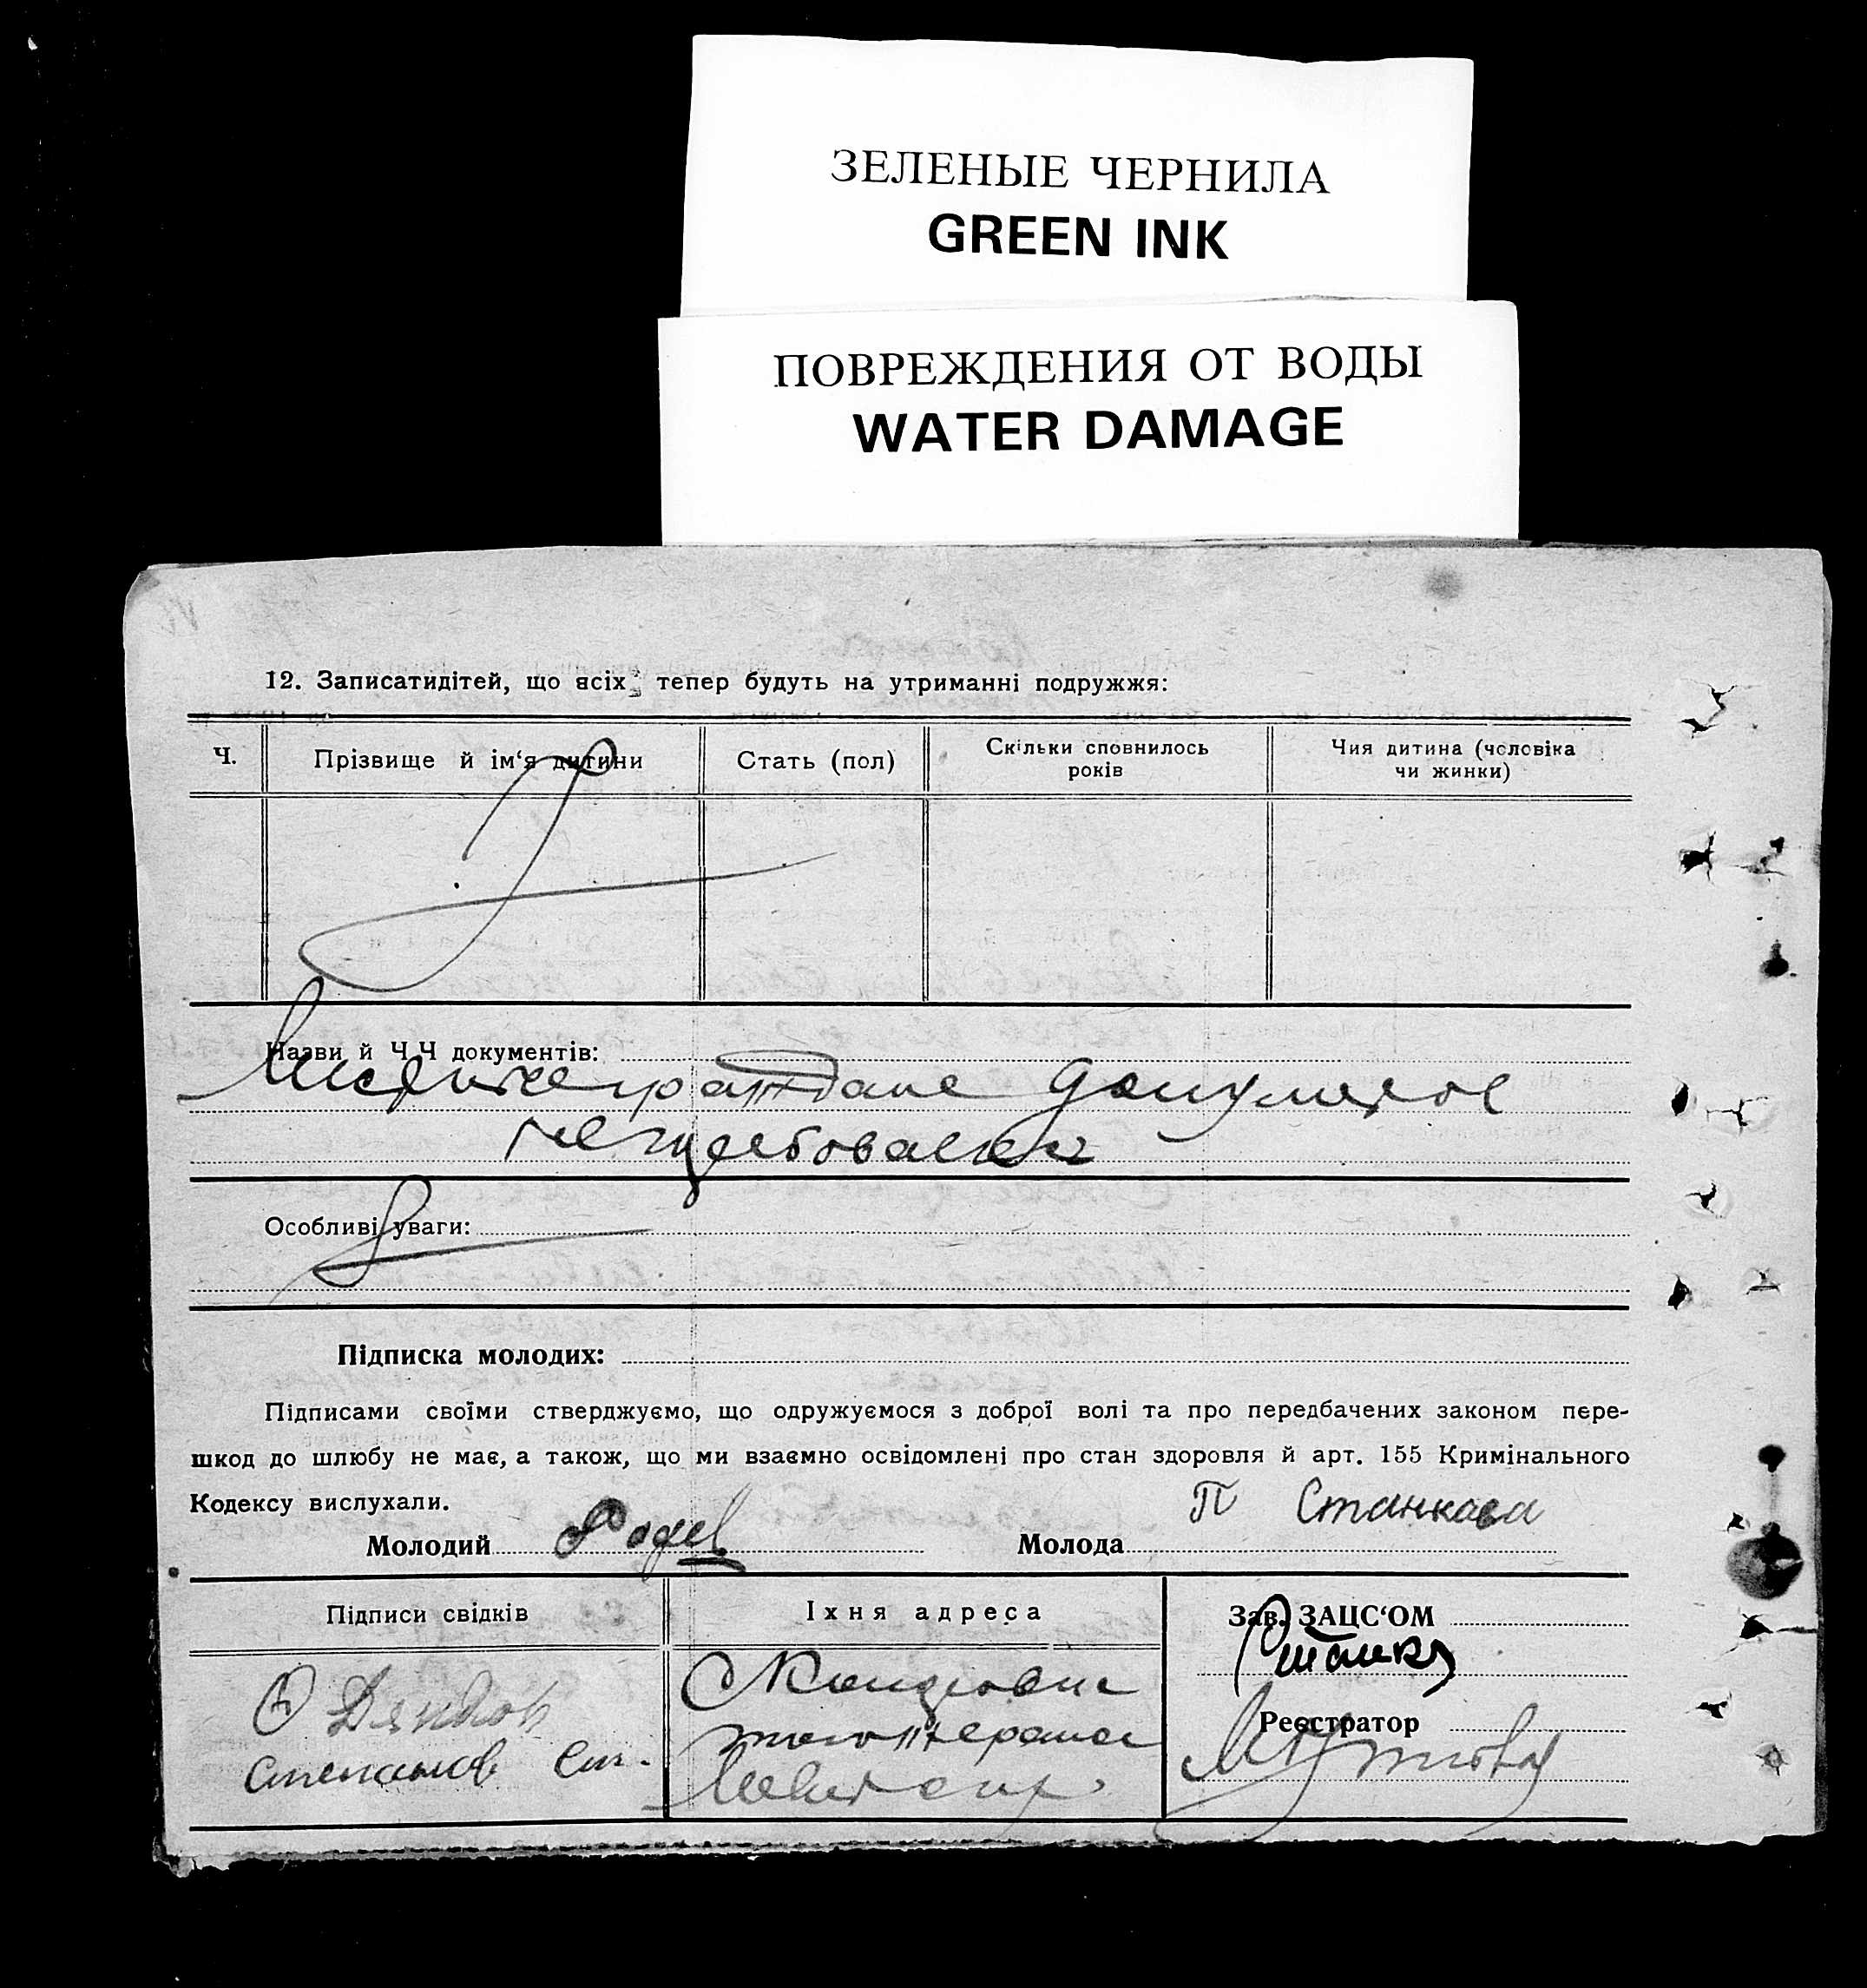 ЗЕЛЕНЫЕ ЧЕРНИЛА
GREEN INK
ПОВРЕЖДЕНИЯ ОТ ВОДЫ
WATER DAMAGE
12. Записатидітей, що всіх тепер будуть на утриманні подружжя:
Ч. Прізвище й ім‘я дитини Стать (пол) Скільки сповнилось років Чия дитина (чоловіка чи жинки)
Назви й Ч Ч документів:
Особливі уваги:
Підписка молодих:
Підписами своїми стверджуємо, що одружуємося з доброї волі та про передбачених законом пере-
шкод до шлюбу не має, а також, що ми взаємно освідомлені про стан здоровля й арт. 155 Кримінального
Кодексу вислухали.
Молодий Родев Молода П Станкова
Підписи свідків Їхня адреса Зав. ЗАЦС‘ОМ
Реєстратор
Степанов Ст.